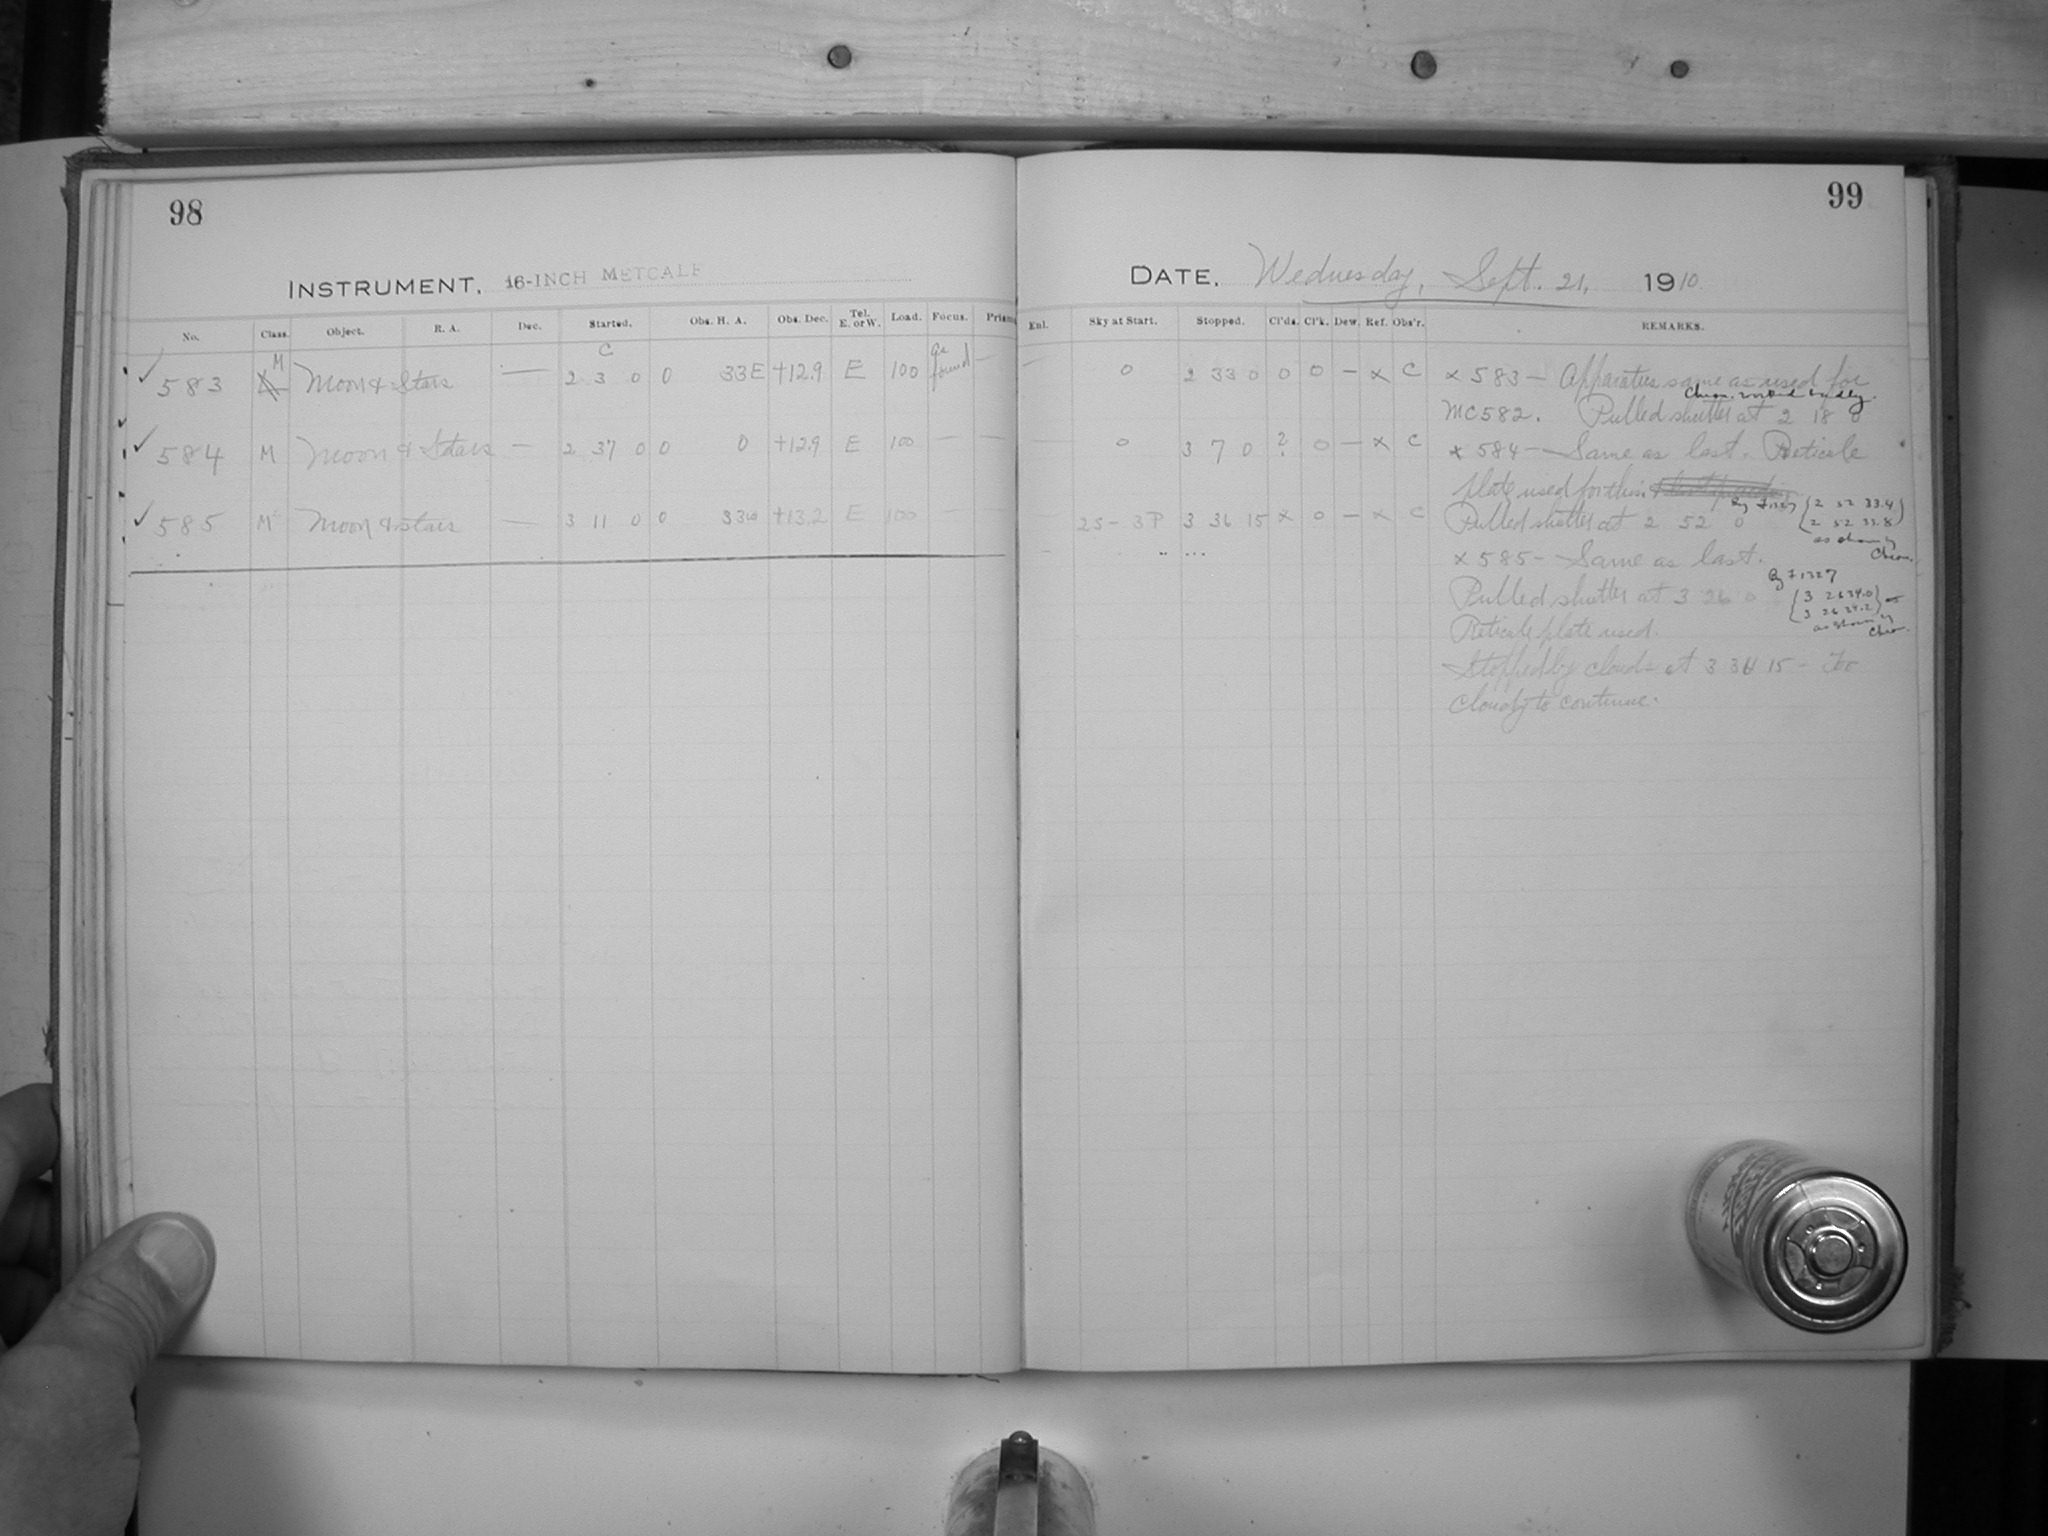 98
INSTRUMENT, 16-INCH METCALF
No. Class. Object. R. A. Dec. Started. Obs. H. A. Obs. Dec. Tel. E. or W. Load. Focus. Prism
583 M Moon & Stars — C 2 3 0 0 33E +12.9 E 100 as found —
584 M Moon & Stars — 2 37 0 0 0 +12.9 E 100 — —
585 M Moon & stars — 3 11 0 0 33W +13.2 E 100 — —
99
DATE, Wednesday, Sept. 21, 1910
Enl. Sky at Start. Stopped. Cl'ds. Cl'k. Dew. Ref. Obs'r. REMARKS.
— 0 2 33 0 0 0 — x C
0 3 7 0 ? 0 — x C
2S - 3P 3 36 15 x 0 — x C
x 583 — Apparatus same as used for
Chron. worked badly.
MC582. Pulled shutter at 2 18 0
x 584 — Same as last. Reticule
plate used for this.
Pulled shutter at 2 52 0 By F1327 {2 52 33.4
2 52 33.8}
as shown by
Chron.
x 585 — Same as last.
By F1327
Pulled shutter at 3 26 0 {3 26 34.0
3 26 34.2}
as shown by
Chron.
Reticule plate used.
Stopped by clouds at 3 36 15 — Too
cloudy to continue.